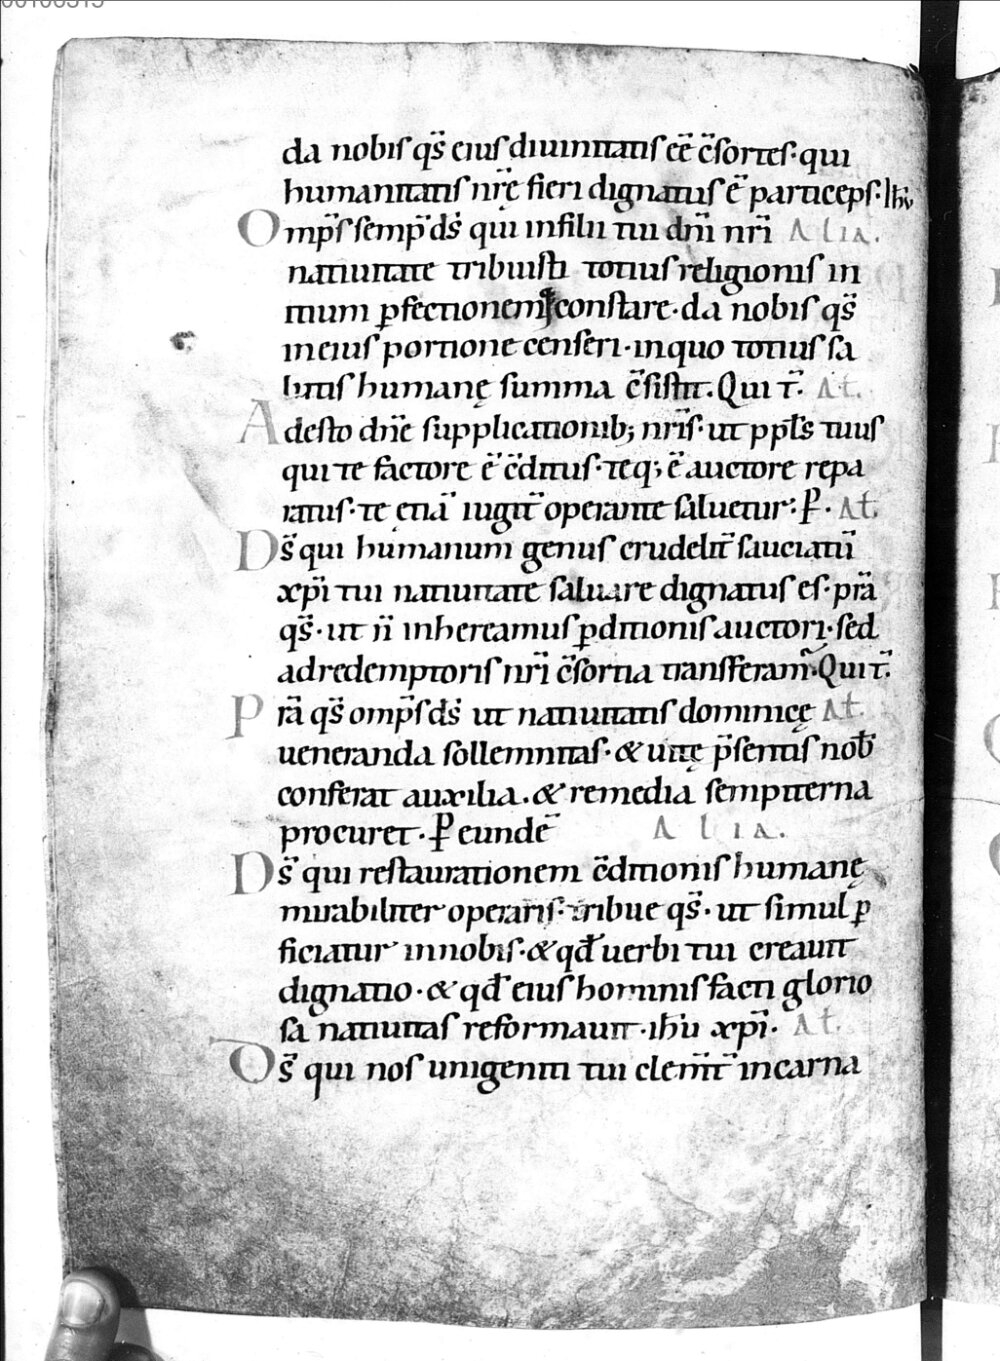 da nobis q̄s eius diuinitatis eē c̄sortes · qui
humanitatis nrē fieri dignatus ē particeps · Ihū
Omp̄s semp̄ d̄s qui in filii tui dnī nrī Alia.
natiuitate tribuisti totius religionis in
itium ꝑfectionemq; constare · da nobis q̄s
in eius portione censeri · in quo totius sa
lutis humanę summa c̄sistit. Qui t̄. Aƚ.
Adesto dnē supplicationib; nrīs · ut ppƚs tuus
qui te factore ē c̄ditus · teq; ē auctore repa
ratus · te etiā iugit̄ operante saluetur : ꝑ · Aƚ.
Ds̄ qui humanum genus crudelit̄ sauciatū
xpī tui natiuitate saluare dignatus es · prā
q̄s · ut n̄ inhereamus ꝑditionis auctori · sed
ad redemptoris nrī c̄sortia transferam̄. Qui t̄.
Prā q̄s omp̄s d̄s ut natiuitatis dominicę Aƚ.
ueneranda sollemnitas · & uitę p̄sentis nob̄
conferat auxilia. & remedia sempiterna
procuret · ꝑ eundē Alia.
Ds̄ qui restaurationem c̄ditionis humanę
mirabiliter operaris · tribue q̄s · ut simul ꝑ
ficiatur in nobis · & qđ uerbi tui creauit
dignatio · & qđ eius hominis facti glorio
sa natiuitas reformauit · ihū xpī · Aƚ.
Ds̄ qui nos unigeniti tui clem̄t̄ incarna